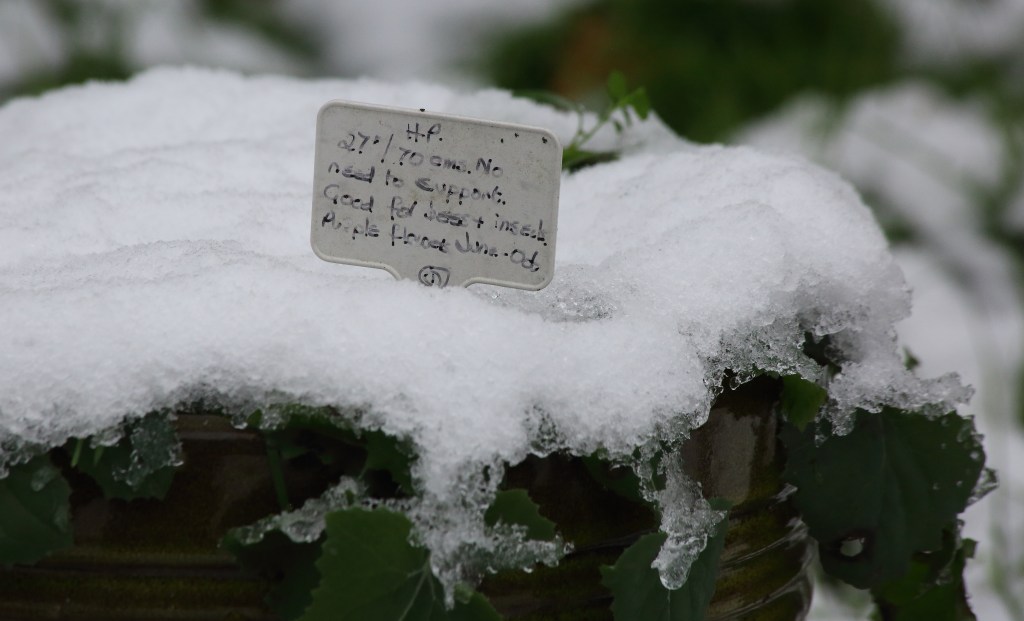 H.P.
27"/70 cms. No
need to support.
Good for bees + insects
Purple flower June-Oct,